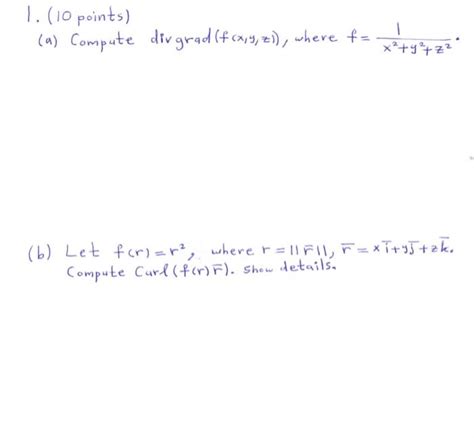 1. (10 points)
(a) Compute div grad (f(x,y,z)), where f = 1/(x²+y²+z²).
(b) Let f(r) = r², where r = ||r̄||, r̄ = x ī + y j̄ + z k̄.
Compute Curl (f(r) r̄). Show details.